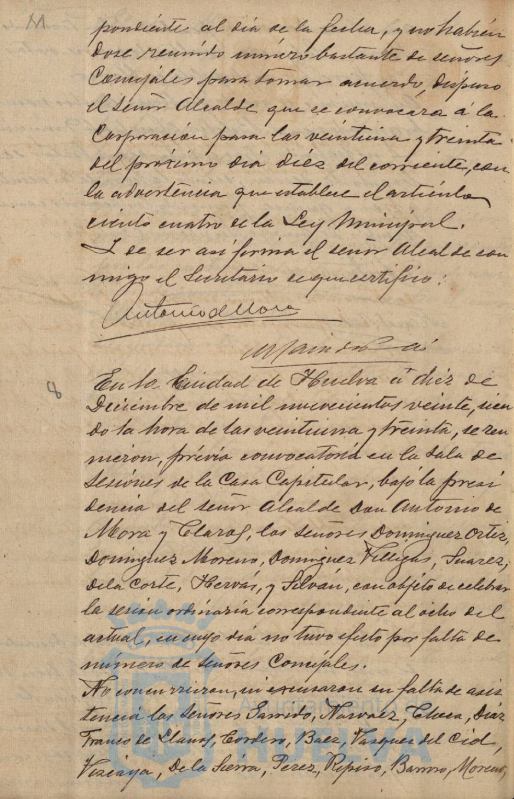 pondiente al dia de la fecha, y no habién
dose reunido número bastante de señores
Concejales para tomar acuerdo, dispuso
el señor Alcalde que se convocara á la
Corporacion para las veintiuna y treinta
del próximo dia diez del corriente, con
la advertencia que establece el artículo
ciento cuatro de la Ley Municipal.
I de ser asi firma el señor Alcalde con
migo el Secretario de que certifico:
Antonio de Mora
8
En la Ciudad de Huelva á diez de
Diciembre de mil novecientos veinte, sien
do la hora de las veintiuna y treinta, se reu
nieron, prévia convocatoria en la Sala de
Sesiones de la Casa Capitular, bajo la presi
dencia del señor Alcalde Don Antonio de
Mora y Claros, los señores Dominguez Ortiz,
Dominguez Moreno, Dominguez Villegas, Suarez,
de la Corte, Hervás, y Silván, con objeto de celebrar
la sesion ordinaria correspondiente al ocho del
actual, en cuyo dia no tuvo efecto por falta de
número de señores Concejales.
No concurrieron, ni excusaron su falta de asis
tencia los señores Garrido, Narvaez, Checa, Diaz
Franco de Llanos, Cordero, Baez, Vazquez del Cid,
Vizcaya, de la Sierra, Perez, Repiso, Barroso, Moreno,
Ayuntamiento
HUELVA